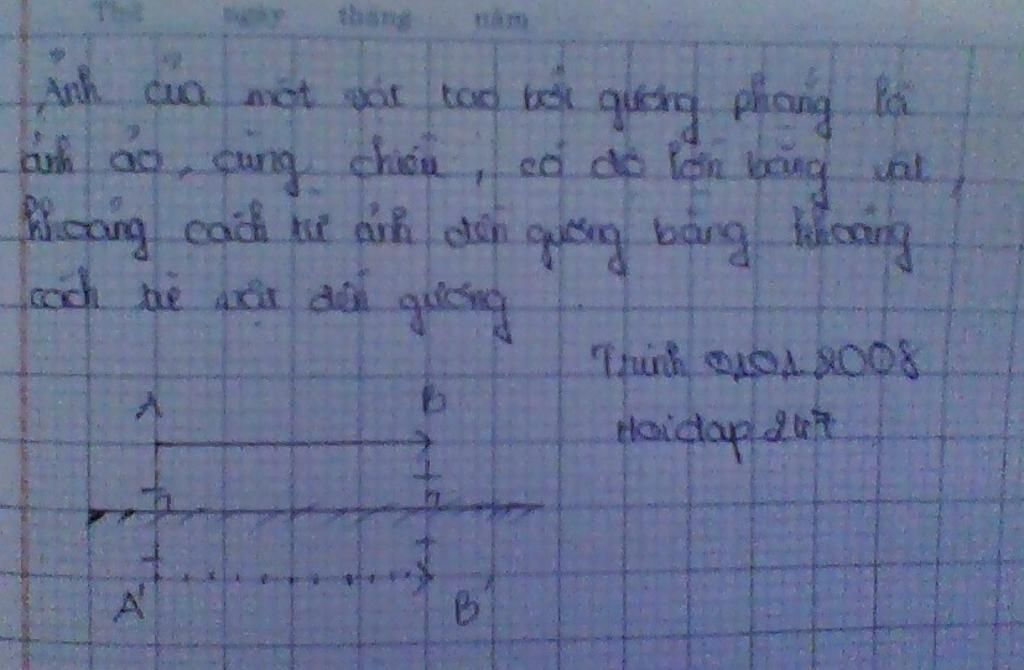 Thứ ngày tháng năm
Ảnh của một vật tạo bởi gương phẳng là
ảnh ảo, cùng chiều, có độ lớn bằng vật,
khoảng cách từ ảnh đến gương bằng khoảng
cách từ vật đến gương
Trinh 0101 2008
Hoidap 247
A B
A' B'